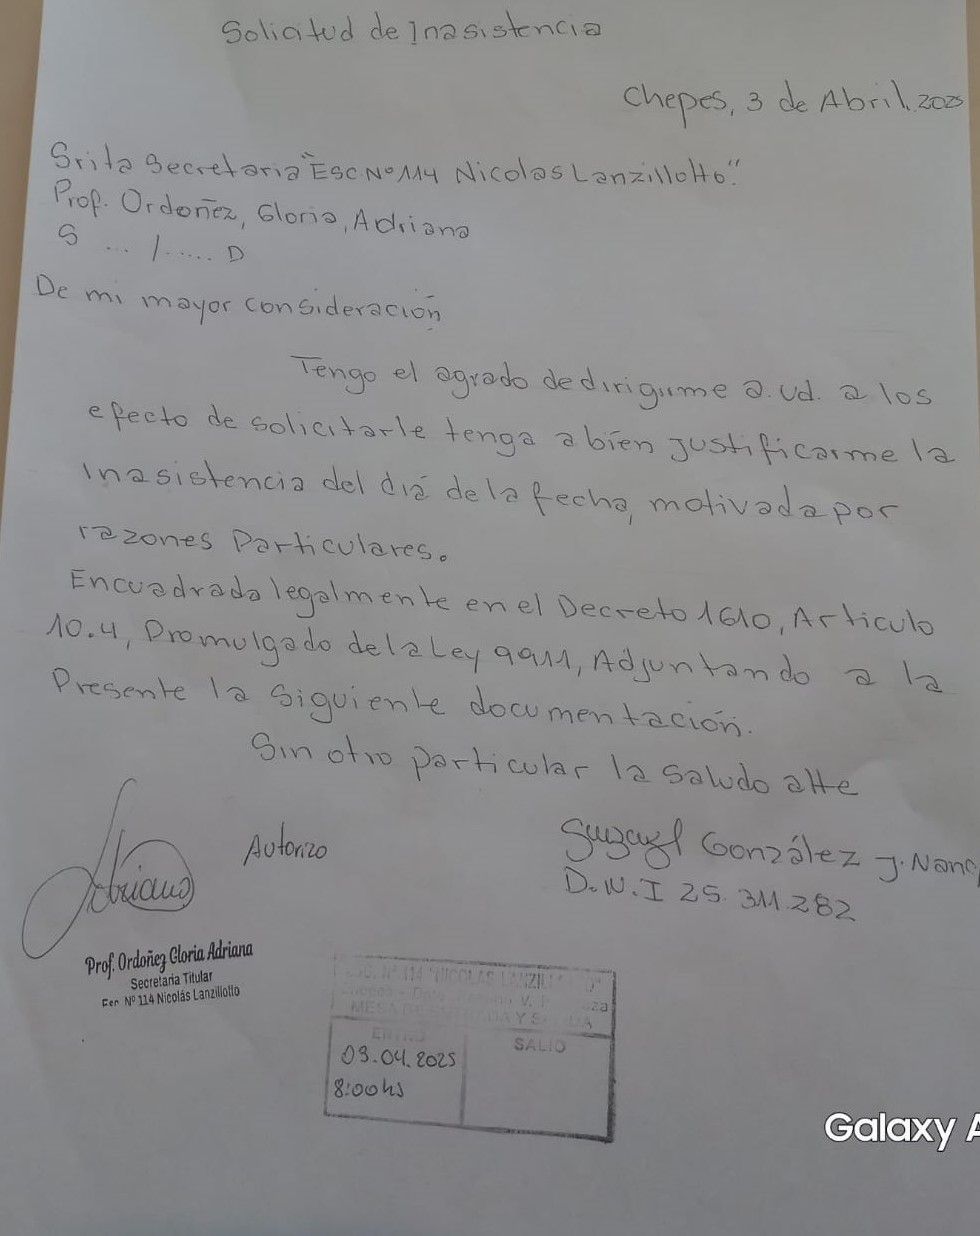 Solicitud de Inasistencia
Chepes, 3 de Abril, 2025
Srita Secretaria "Esc. Nº 114 Nicolas Lanzillotto."
Prof. Ordoñez, Gloria, Adriana
S ... / ..... D
De mi mayor consideración
Tengo el agrado de dirigirme a. ud. a los
efecto de solicitarle tenga a bien justificarme la
Inasistencia del día de la fecha, motivada por
razones Particulares.
Encuadrada legalmente en el Decreto 1610, Articulo
10.4, Promulgado de la Ley 9911, Adjuntando a la
Presente la siguiente documentación.
Sin otro particular la saludo atte
González J. Nanc
D.N.I 25.311.282
Autorizo
Prof. Ordoñez Gloria Adriana
Secretaria Titular
Nº 114 Nicolás Lanzillotto
Nº 114 "NICOLAS
V.
MESA DE ENTRADA Y
ENTRO
SALIO
03.04.2025
8:00hs
Galaxy A